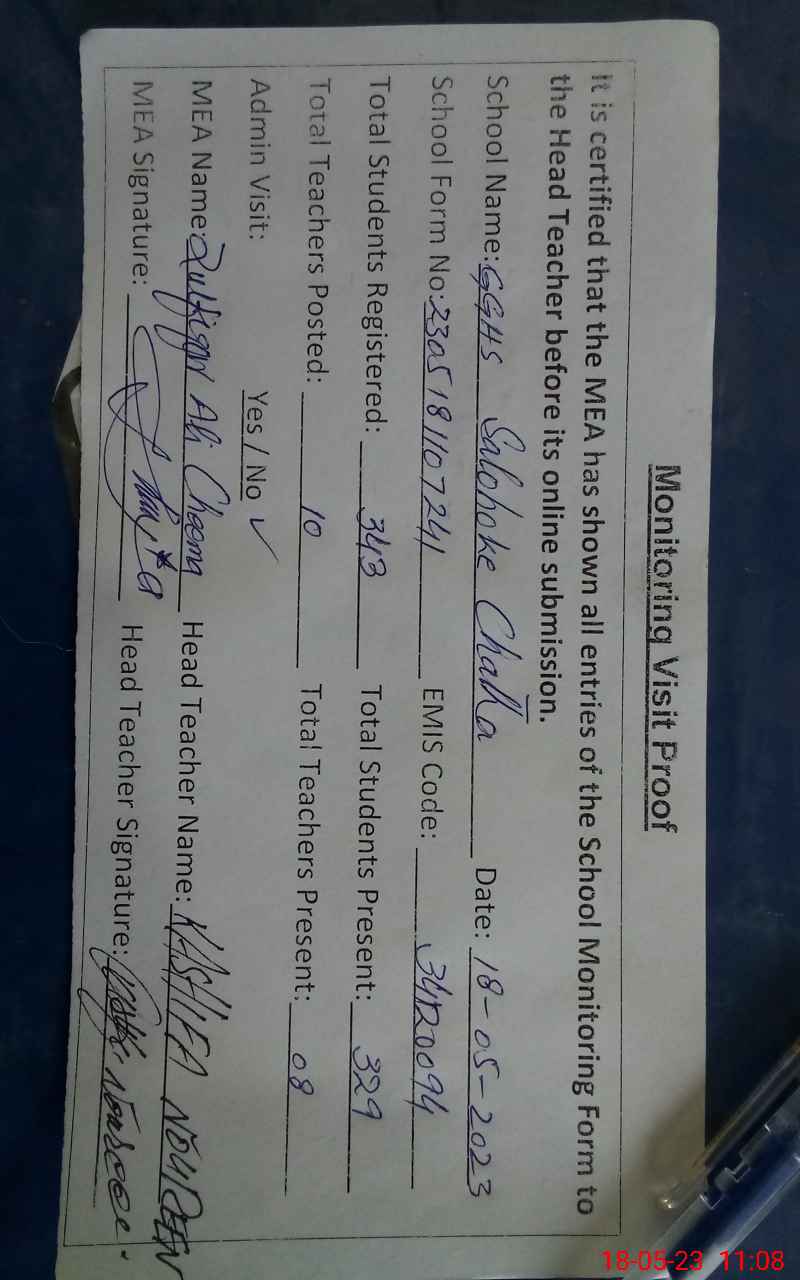 Monitoring Visit Proof
It is certified that the MEA has shown all entries of the School Monitoring Form to
the Head Teacher before its online submission.
School Name: GGHS Salohoke Chatta Date: 18-05-2023
School Form No: 2305181107241 EMIS Code: 34120094
Total Students Registered: 343 Total Students Present: 329
Total Teachers Posted: 10 Total Teachers Present: 08
Admin Visit: Yes / No ✓
MEA Name: Zulfiqar Ali Cheema Head Teacher Name: KASHIFA NOUREEN
MEA Signature: Head Teacher Signature:
18-05-23 11:08